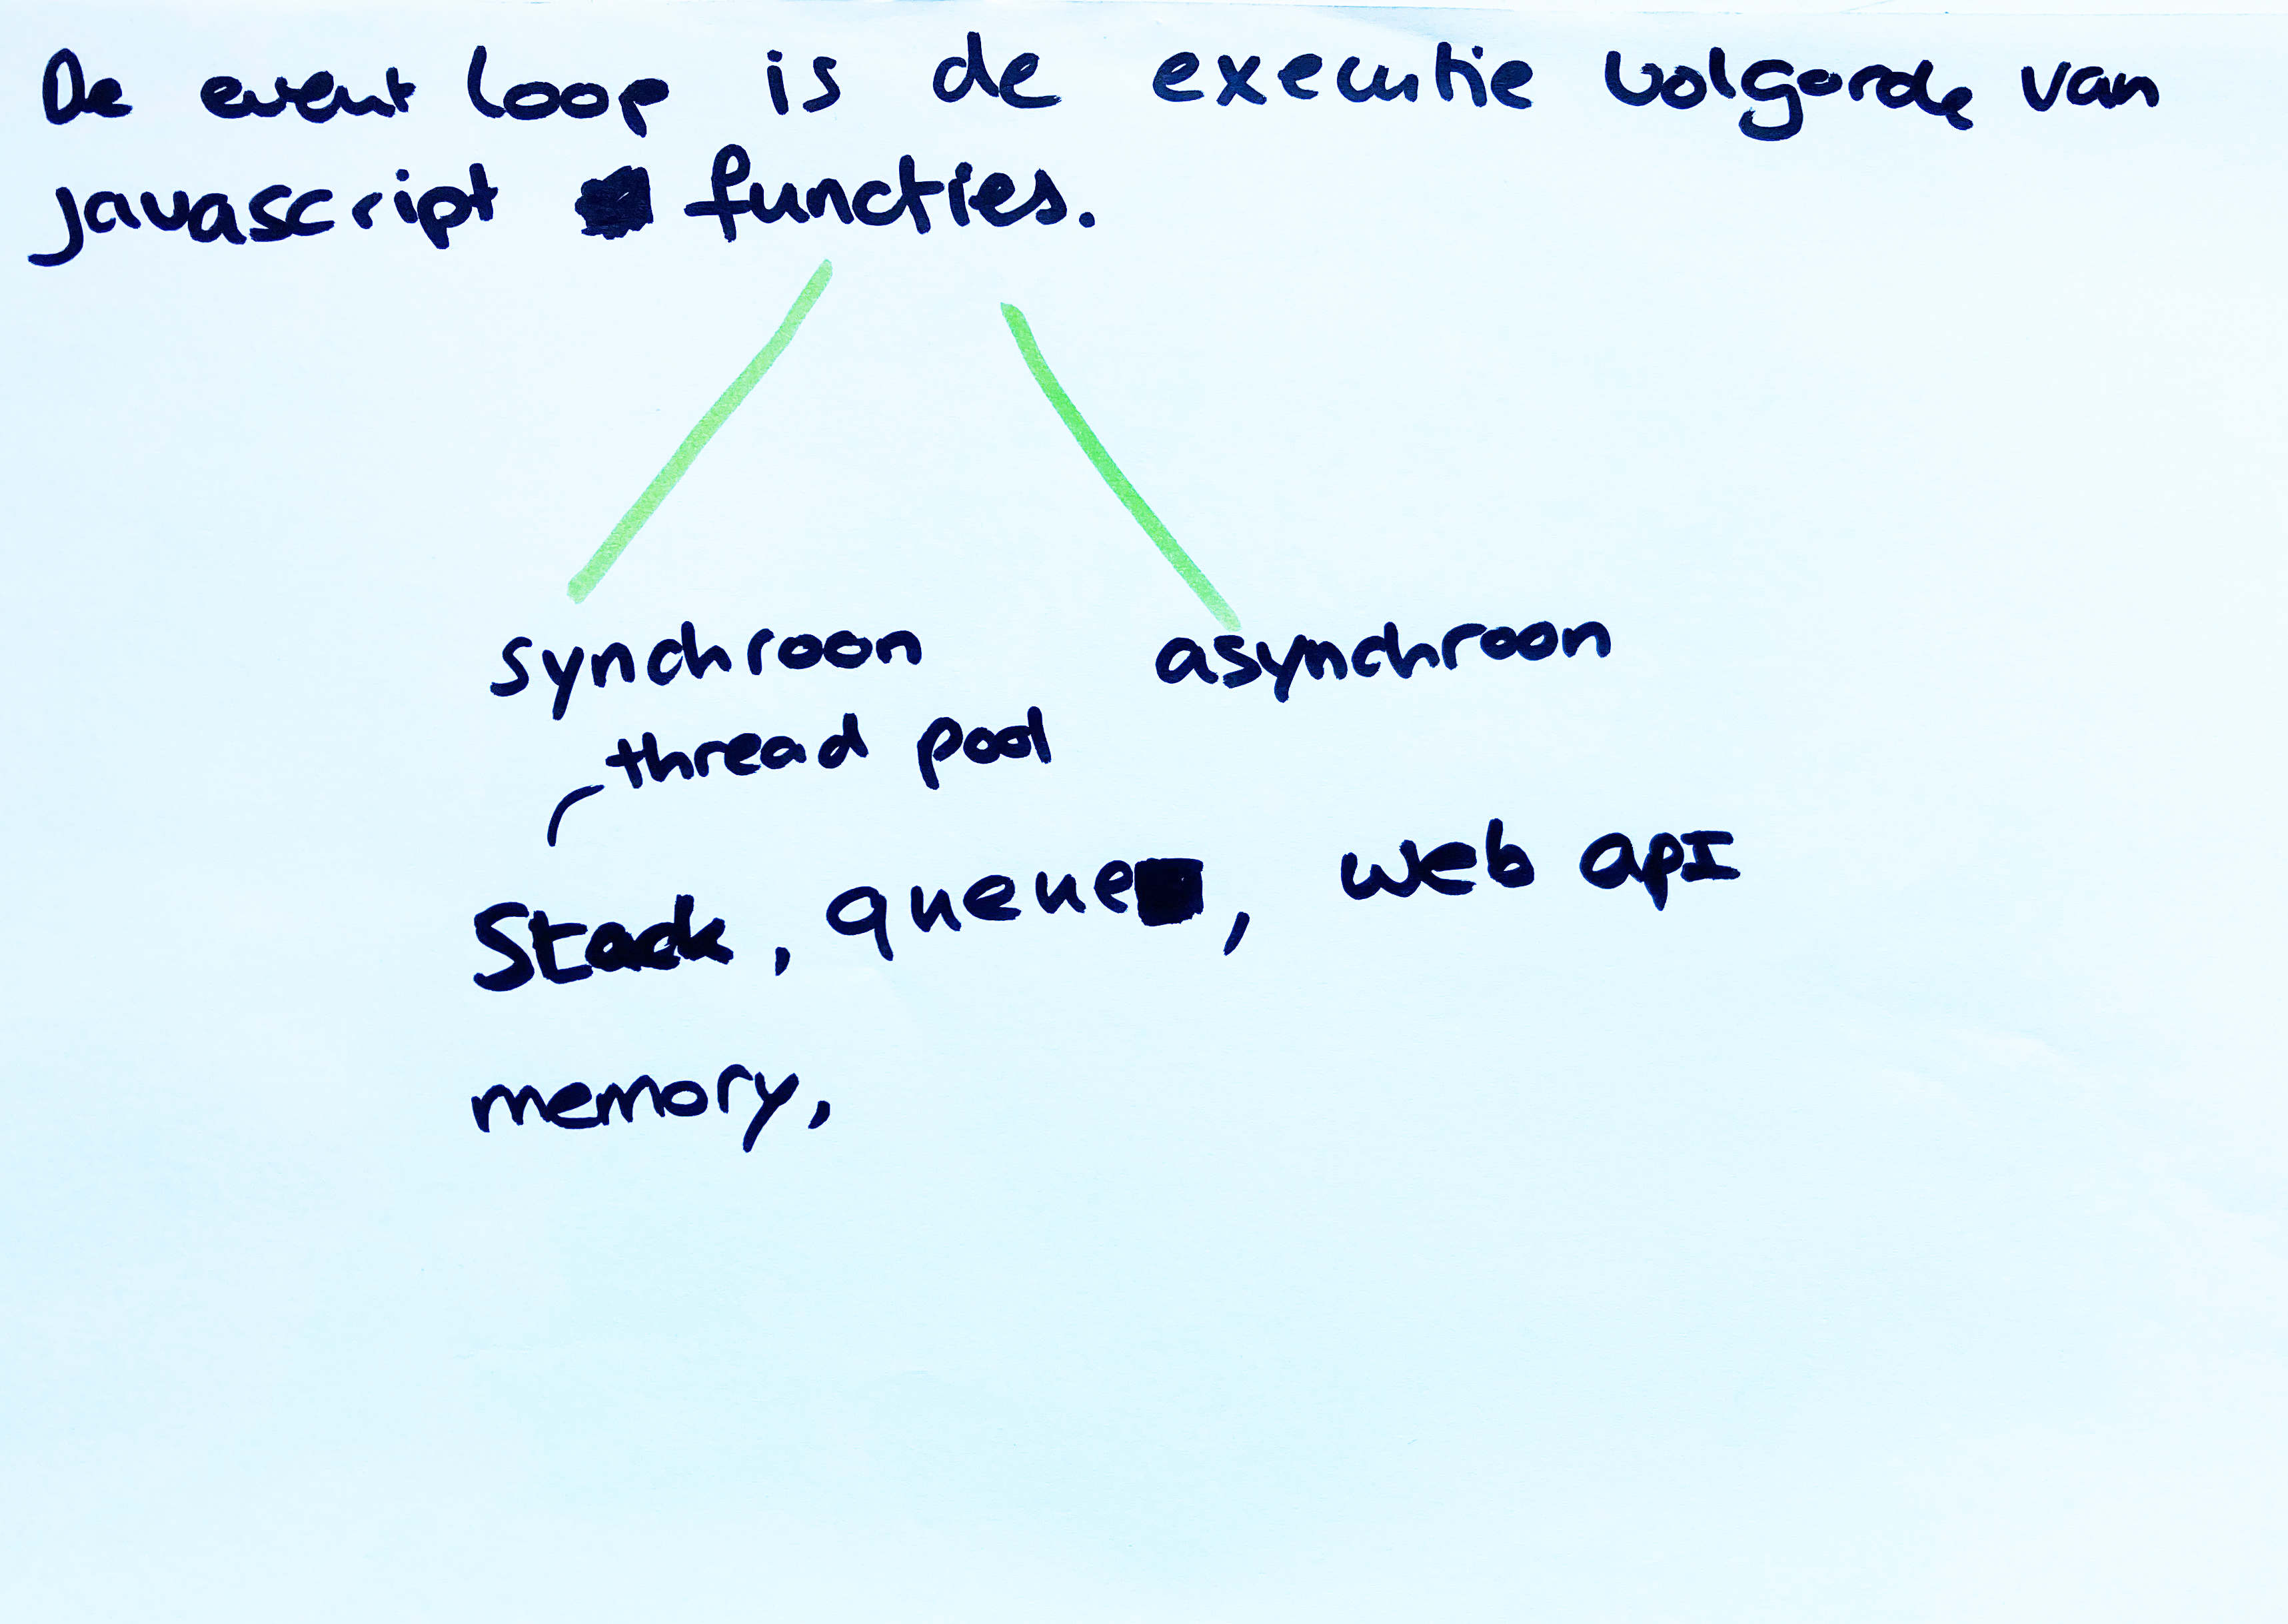 De event loop is de executie volgorde van
javascript functies.
synchroon asynchroon
thread pool
Stack, queue, web apI
memory,